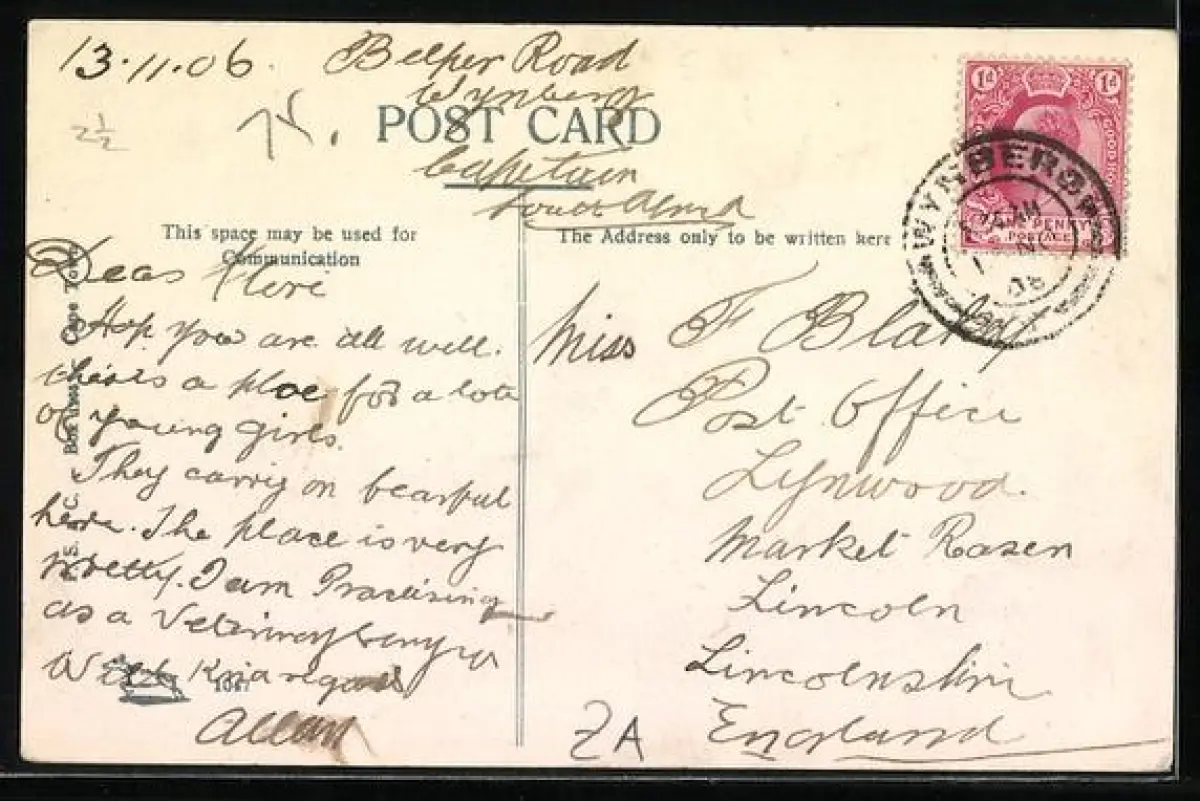 13.11.06. Belper Road
Wynberg
2½
POST CARD
Capetown
South Africa
This space may be used for
Communication
The Address only to be written here
1d 1d
WYNBERG
ONE PENNY
POSTAGE
Dear
Hop you are all well.
this is a place for a lots
of young girls.
They carrig on fearful
here. The place is very
Pretty. I am Practising
as a
With Kind regards
1047
Allan
Miss F Blakey
Post Office
Lynwood.
Market Rasen
Lincoln
Lincolnshire
England
ZA
Cape Town